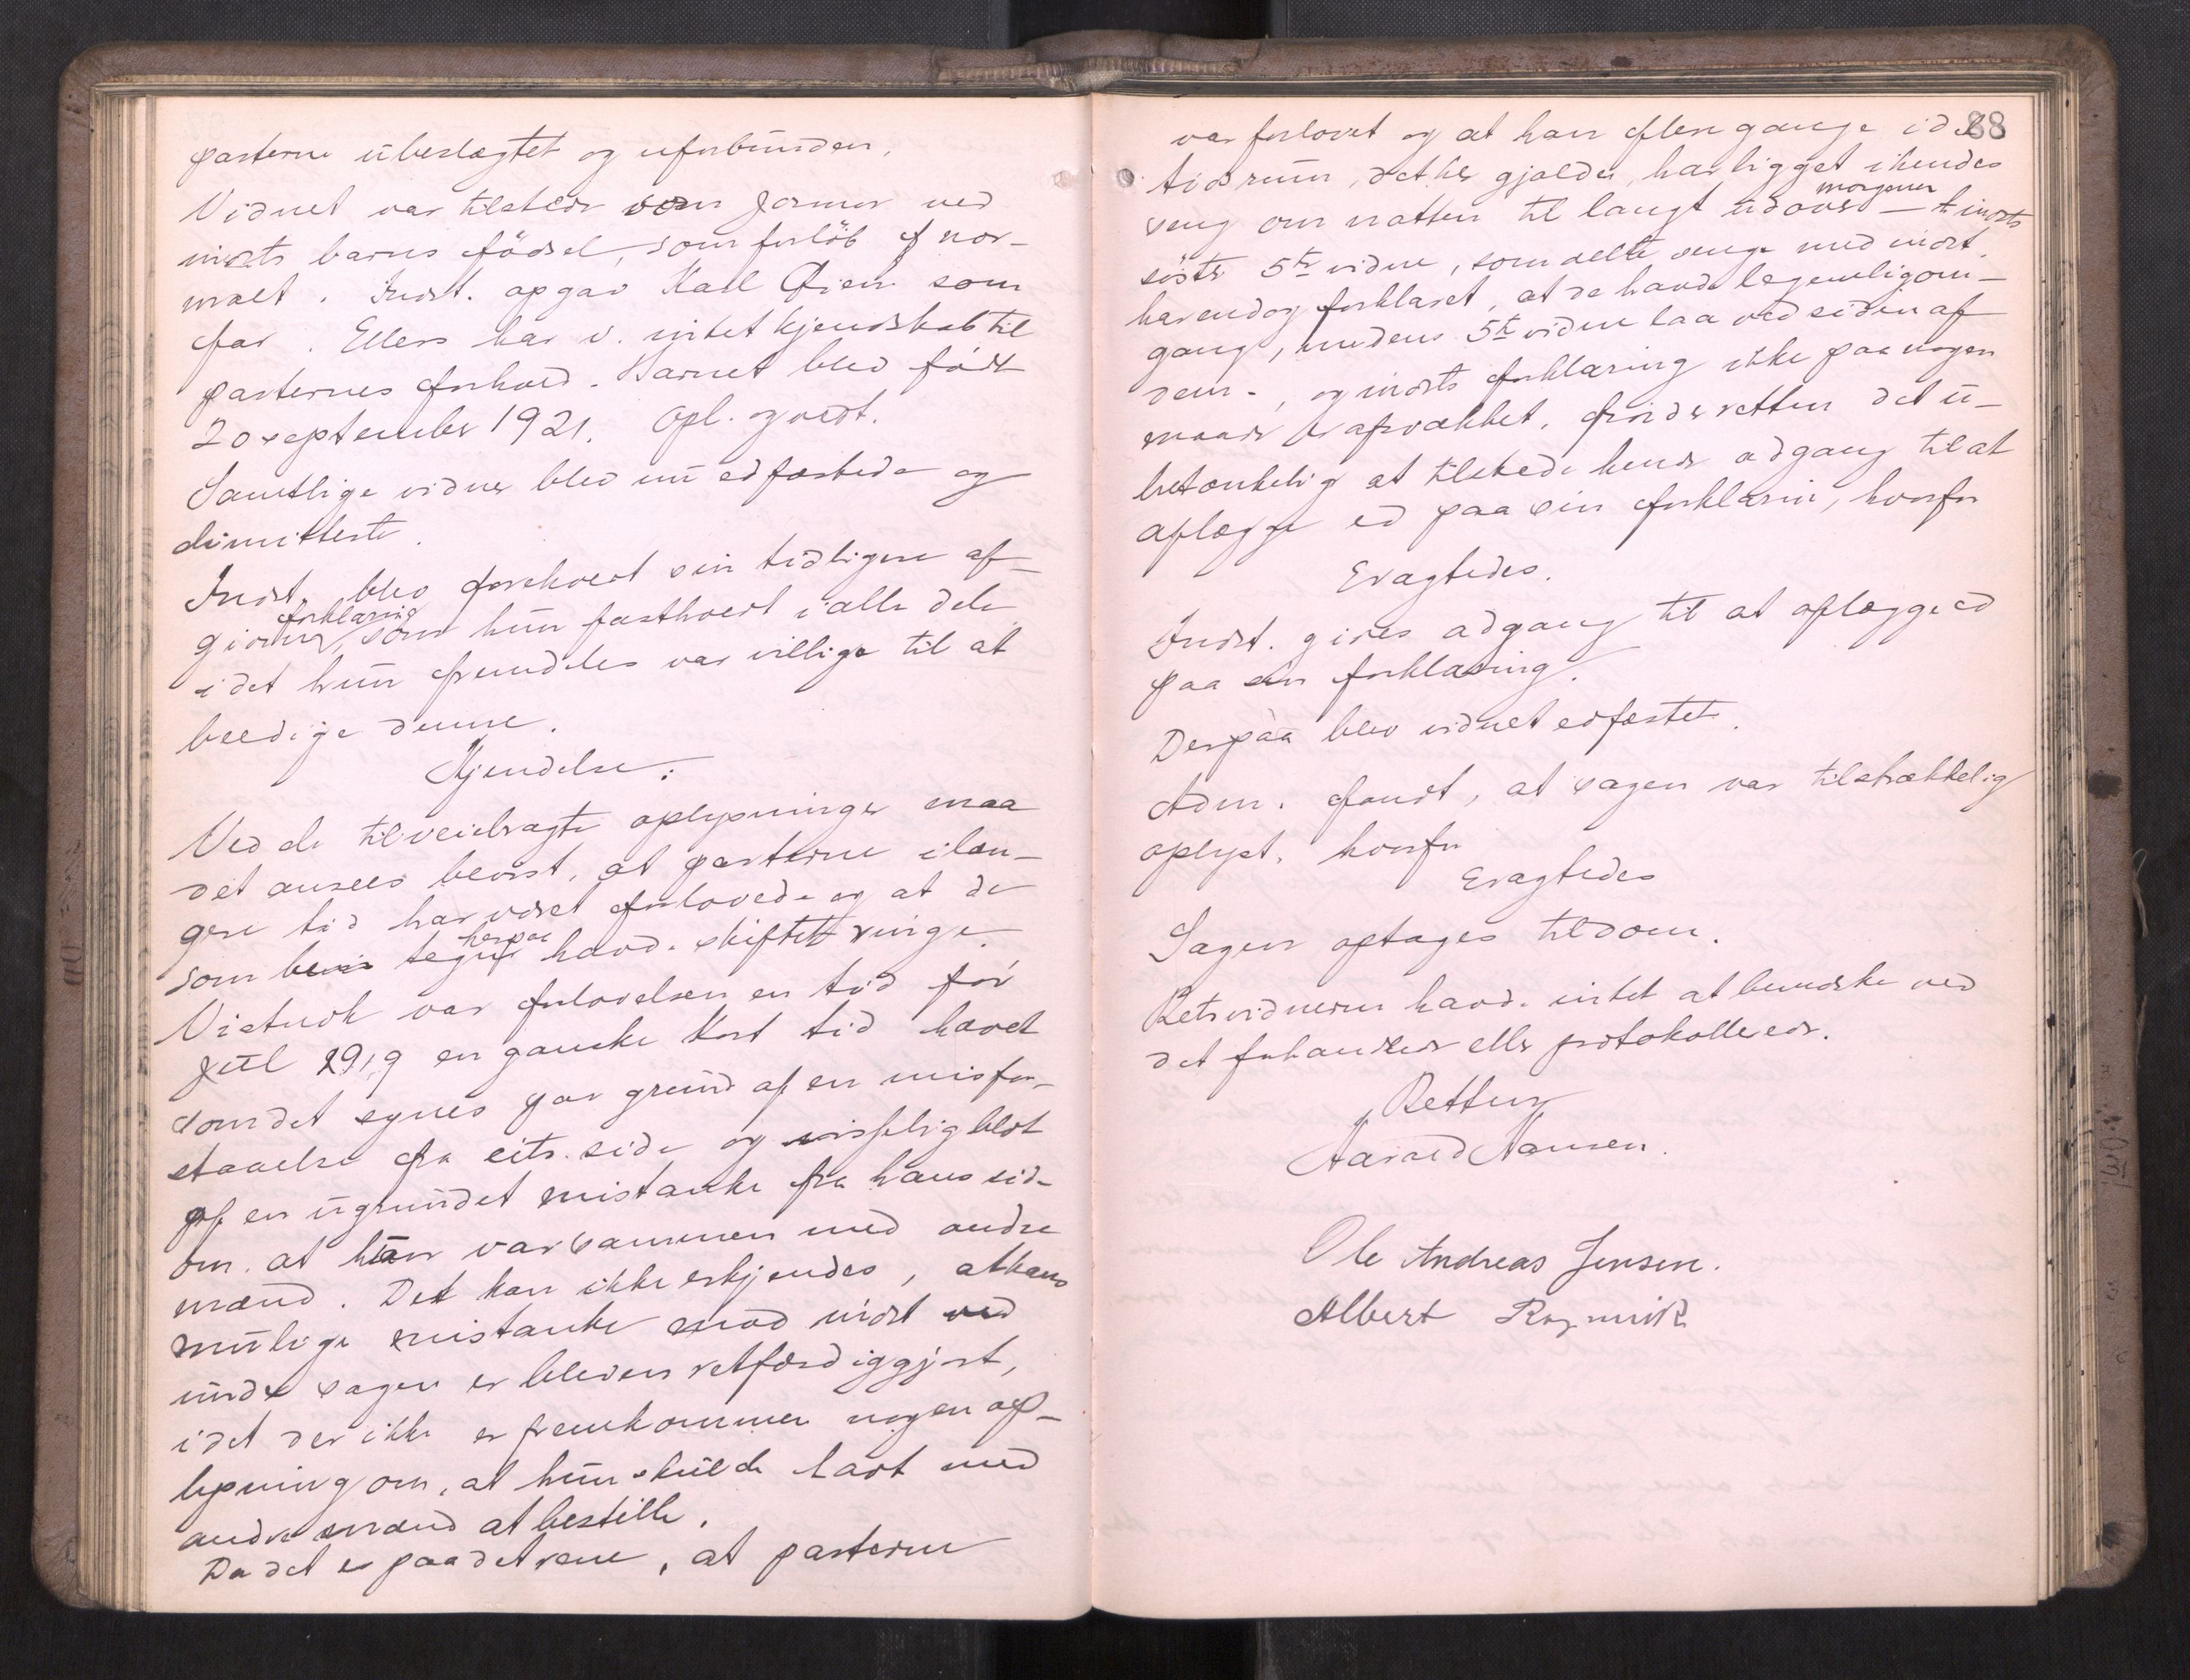 parterne ubeslægtet og uforbunden.
Vidnet var tilstede som Jormor ved
indsts barns födsel, som forlöb nor-
malt. Indst. opgav Karl Øien som
far. Ellers har v. intet kjendskab til
parternes forhold. Barnet blev födt
20 september 1921. Opl. og vedt.
Samtlige vidner blev nu edfæstede og
dimitterte.
Indst. blev foreholdt sin tidligere af-
givne forklaring, som hun fastholdt i alle dele
idet hun fremdeles var villige til at
beedige denne.
Kjendelse:
Ved de tilveiebragte oplysninger maa
det ansees bevist, at parterne i læn-
gere tid har været forlovede og at de
som tegn herpaa havde skiftet ringe.
Vistnok var forlovelsen en tid för
Jul 1919 en ganske kort tid hævet
som det synes par grund af en misfor-
staaelse fra hans side og blot
paa en ugrundet mistanke fra hans side
om at hun var sammen med andre
mænd. Det kan ikke erkjendes, at hans
mulige mistanke mod indst ved
under sagen er bleven retfærdiggjort,
idet der ikke er fremkommen nogen op-
lysning om, at hun skulde havt med
andre mænd at bestille.
Da det er paa det rene, at parterne
88
var forlovet og at han flere gange i det
tidsrum, det her gjælder, har ligget i hendes
seng om natten til langt udover morgenen – indsts
söster 5te vidne, som delte senge med indst.
har endog forklaret, at de havde legemlig om-
gang, medens 5te vidne laa ved siden af
dem –, og indsts forklaring ikke paa nogen
maade er afsvækket, finder retten det u-
betænkelig at tilstede hende adgang til at
aflægge ed paa sin forklaring, hvorfor
Eragtedes.
Indst. gives adgang til at aflægge ed
paa sin forklaring.
Derpaa blev vidnet edfæstet.
Adm. fandt, at sagen var tilstrækkelig
oplyst, hvorfor
Eragtedes
Sagen optages til dom.
Retsvidnerne havde intet at bemærke ved
det forhandlede eller protokollerede.
Retten
Harald Hansen.
Ole Andreas Jensen.
Albert